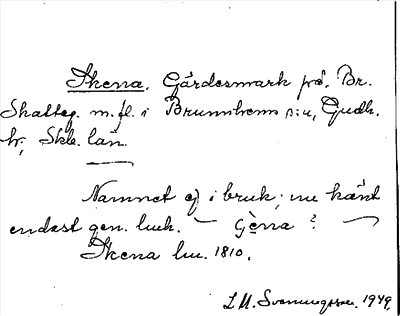 Skena. Gärdesmark på Br.
Skatteg. m.fl. i Brunnhems s:n, Gudh.
hr, Skb. län.
Namnet ej i bruk; nu känt
endast gen. luh. — Gèna ? —
Skena lm. 1810.
L.M. Svenungsson. 1949.